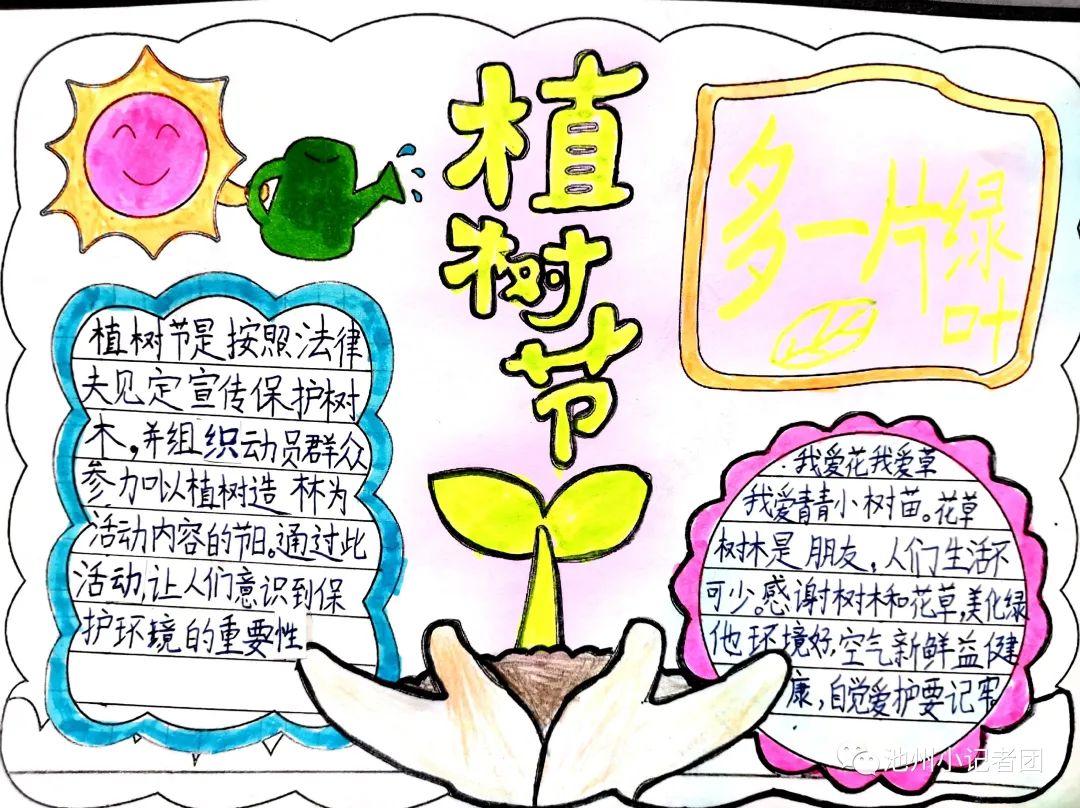 植树节
多一片绿叶
植树节是按照法律
夫见定宣传保护树
木，并组织动员群众
参加以植树造林为
活动内容的节日。通过此
活动，让人们意识到保
护环境的重要性
我爱花我爱草
我爱青青小树苗。花草
树木是朋友，人们生活不
可少。感谢树木和花草，美化绿
他环境好，空气新鲜益健
康，自觉爱护要记牢
池州小记者团